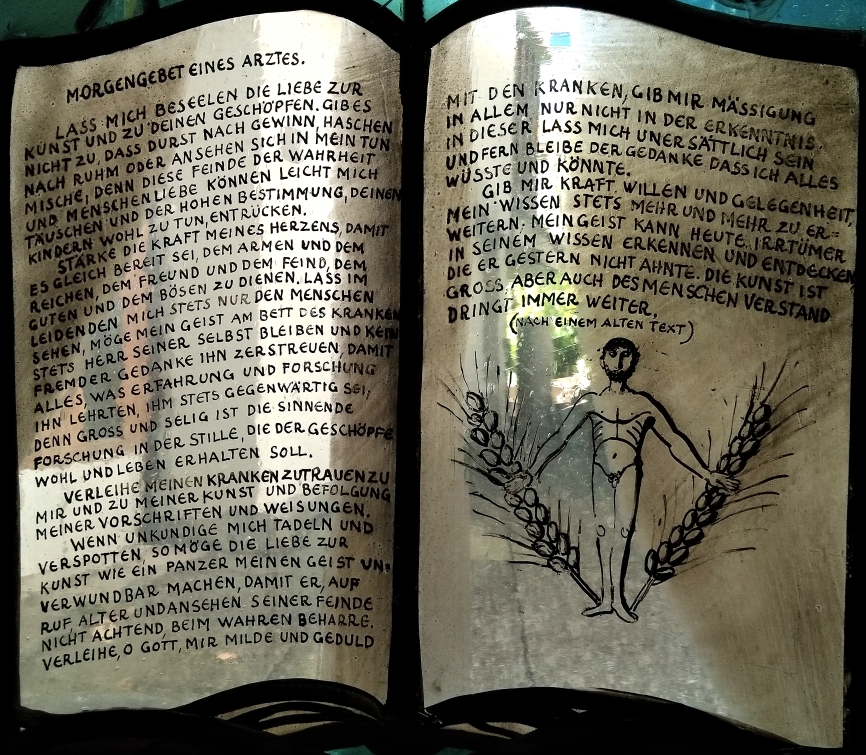 MORGENGEBET EINES ARZTES.
LASS MICH BESEELEN DIE LIEBE ZUR
KUNST UND ZU DEINEN GESCHÖPFEN. GIB ES
NICHT ZU, DASS DURST NACH GEWINN, HASCHEN
NACH RUHM ODER ANSEHEN SICH IN MEIN TUN
MISCHE, DENN DIESE FEINDE DER WAHRHEIT
UND MENSCHENLIEBE KÖNNEN LEICHT MICH
TÄUSCHEN UND DER HOHEN BESTIMMUNG, DEINEN
KINDERN WOHL ZU TUN, ENTRÜCKEN.
STÄRKE DIE KRAFT MEINES HERZENS, DAMIT
ES GLEICH BEREIT SEI, DEM ARMEN UND DEM
REICHEN, DEM FREUND UND DEM FEIND, DEM
GUTEN UND DEM BÖSEN ZU DIENEN. LASS IM
LEIDENDEN MICH STETS NUR DEN MENSCHEN
SEHEN, MÖGE MEIN GEIST AM BETT DES KRANKEN
STETS HERR SEINER SELBST BLEIBEN UND KEIN
FREMDER GEDANKE IHN ZERSTREUEN, DAMIT
ALLES, WAS ERFAHRUNG UND FORSCHUNG
IHN LEHRTEN, IHM STETS GEGENWÄRTIG SEI;
DENN GROSS UND SELIG IST DIE SINNENDE
FORSCHUNG IN DER STILLE, DIE DER GESCHÖPFE
WOHL UND LEBEN ERHALTEN SOLL.
VERLEIHE MEINEN KRANKEN ZUTRAUEN ZU
MIR UND ZU MEINER KUNST UND BEFOLGUNG
MEINER VORSCHRIFTEN UND WEISUNGEN.
WENN UNKUNDIGE MICH TADELN UND
VERSPOTTEN, SO MÖGE DIE LIEBE ZUR
KUNST WIE EIN PANZER MEINEN GEIST UN-
VERWUNDBAR MACHEN, DAMIT ER, AUF
RUF, ALTER UND ANSEHEN SEINER FEINDE
NICHT ACHTEND, BEIM WAHREN BEHARRE.
VERLEIHE, O GOTT, MIR MILDE UND GEDULD
MIT DEN KRANKEN, GIB MIR MÄSSIGUNG
IN ALLEM NUR NICHT IN DER ERKENNTNIS.
IN DIESER LASS MICH UNERSÄTTLICH SEIN
UND FERN BLEIBE DER GEDANKE DASS ICH ALLES
WÜSSTE UND KÖNNTE.
GIB MIR KRAFT, WILLEN UND GELEGENHEIT,
MEIN WISSEN STETS MEHR UND MEHR ZU ER=
WEITERN. MEIN GEIST KANN HEUTE IRRTÜMER
IN SEINEM WISSEN ERKENNEN UND ENTDECKEN
DIE ER GESTERN NICHT AHNTE. DIE KUNST IST
GROSS, ABER AUCH DES MENSCHEN VERSTAND
DRINGT IMMER WEITER.
(NACH EINEM ALTEN TEXT)